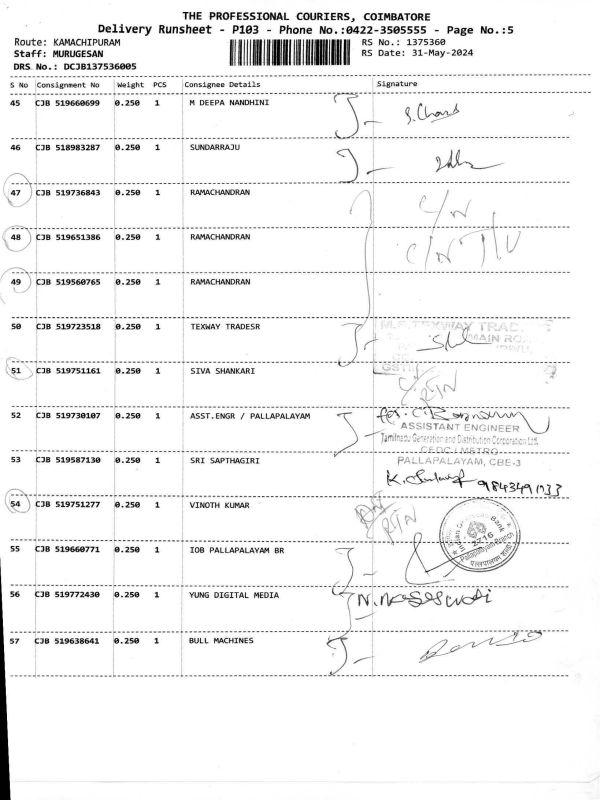 THE PROFESSIONAL COURIERS, COIMBATORE
Delivery Runsheet - P103 - Phone No.:0422-3505555 - Page No.:5
Route: KAMACHIPURAM RS No.: 1375360
Staff: MURUGESAN RS Date: 31-May-2024
DRS No.: DCJB137536005
S No Consignment No Weight PCS Consignee Details Signature
45 CJB 519660699 0.250 1 M DEEPA NANDHINI
46 CJB 518983287 0.250 1 SUNDARRAJU
47 CJB 519736843 0.250 1 RAMACHANDRAN C/N
48 CJB 519651386 0.250 1 RAMACHANDRAN C/N
49 CJB 519560765 0.250 1 RAMACHANDRAN
50 CJB 519723518 0.250 1 TEXWAY TRADESR
TEXWAY TRAD
MAIN RO
GSTI
51 CJB 519751161 0.250 1 SIVA SHANKARI
52 CJB 519730107 0.250 1 ASST.ENGR / PALLAPALAYAM
ASSISTANT ENGINEER
Tamilnadu Generation and Distribution Corporation Ltd.
CEDC / METRO
PALLAPALAYAM, CBE-3
53 CJB 519587130 0.250 1 SRI SAPTHAGIRI
54 CJB 519751277 0.250 1 VINOTH KUMAR
Bank
2716
Pallapalayam Branch
55 CJB 519660771 0.250 1 IOB PALLAPALAYAM BR
56 CJB 519772430 0.250 1 YUNG DIGITAL MEDIA
57 CJB 519638641 0.250 1 BULL MACHINES